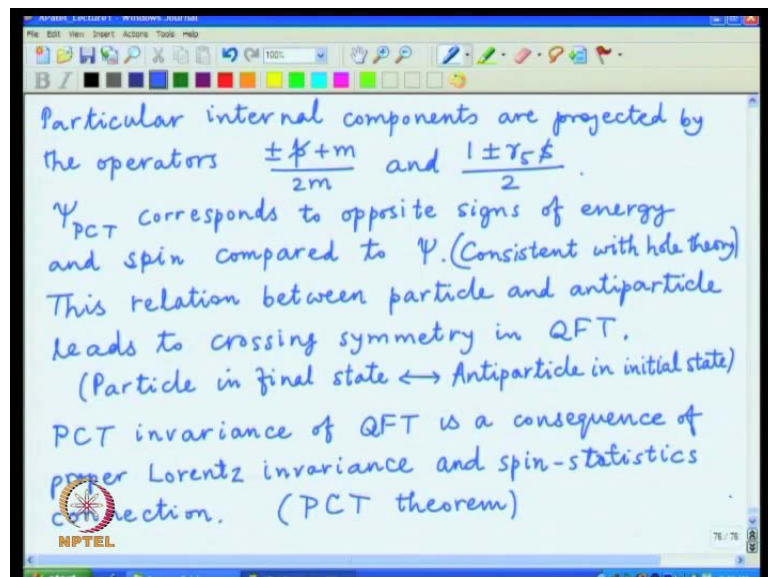 XPatel_Lecture1 - Windows Journal
File Edit View Insert Actions Tools Help
100%
B I
Particular internal components are projected by
the operators (±p̸+m)/2m and (1±γ₅s̸)/2 .
Ψ_PCT corresponds to opposite signs of energy
and spin compared to Ψ. (Consistent with hole theory)
This relation between particle and antiparticle
leads to crossing symmetry in QFT.
(Particle in final state ⟷ Antiparticle in initial state)
PCT invariance of QFT is a consequence of
proper Lorentz invariance and spin-statistics
connection. (PCT theorem)
NPTEL
76 / 76